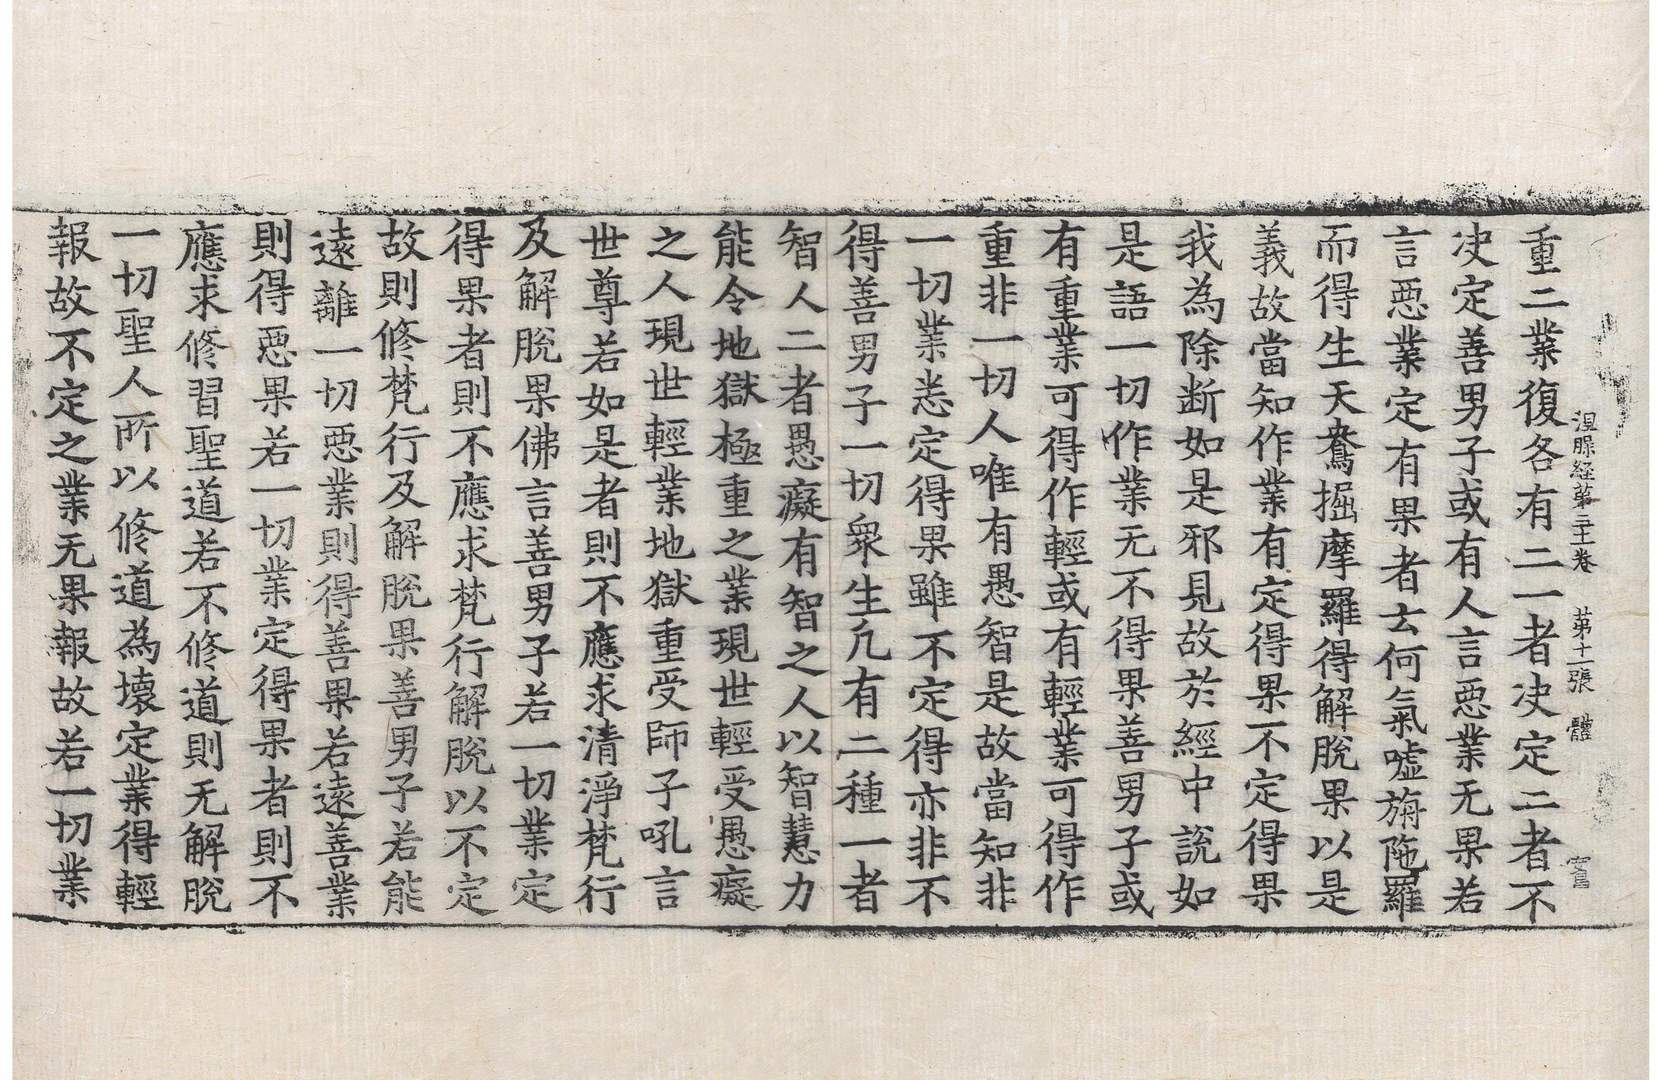 涅槃経苐三十一卷 苐十二張 體
重二業復各有二一者决定二者不
决定善男子或有人言惡業无果若
言惡業定有果者云何氣噓旃陁羅
而得生天鴦掘摩羅得解脫果以是
義故當知作業有定得果不定得果
我為除断如是邪見故於經中說如
是語一切作業无不得果善男子或
有重業可得作輕或有輕業可得作
重非一切人唯有愚智是故當知非
一切業悉定得果雖不定得亦非不
得善男子一切衆生凡有二種一者
智人二者愚癡有智之人以智慧力
能令地獄極重之業現世輕受愚癡
之人現世輕業地獄重受師子吼言
世尊若如是者則不應求清淨梵行
及解脫果佛言善男子若一切業定
得果者則不應求梵行解脫以不定
故則修梵行及解脫果善男子若能
遠離一切惡業則得善果若遠善業
則得惡果若一切業定得果者則不
應求修習聖道若不修道則无解脫
一切聖人所以修道為壞定業得輕
報故不定之業无果報故若一切業